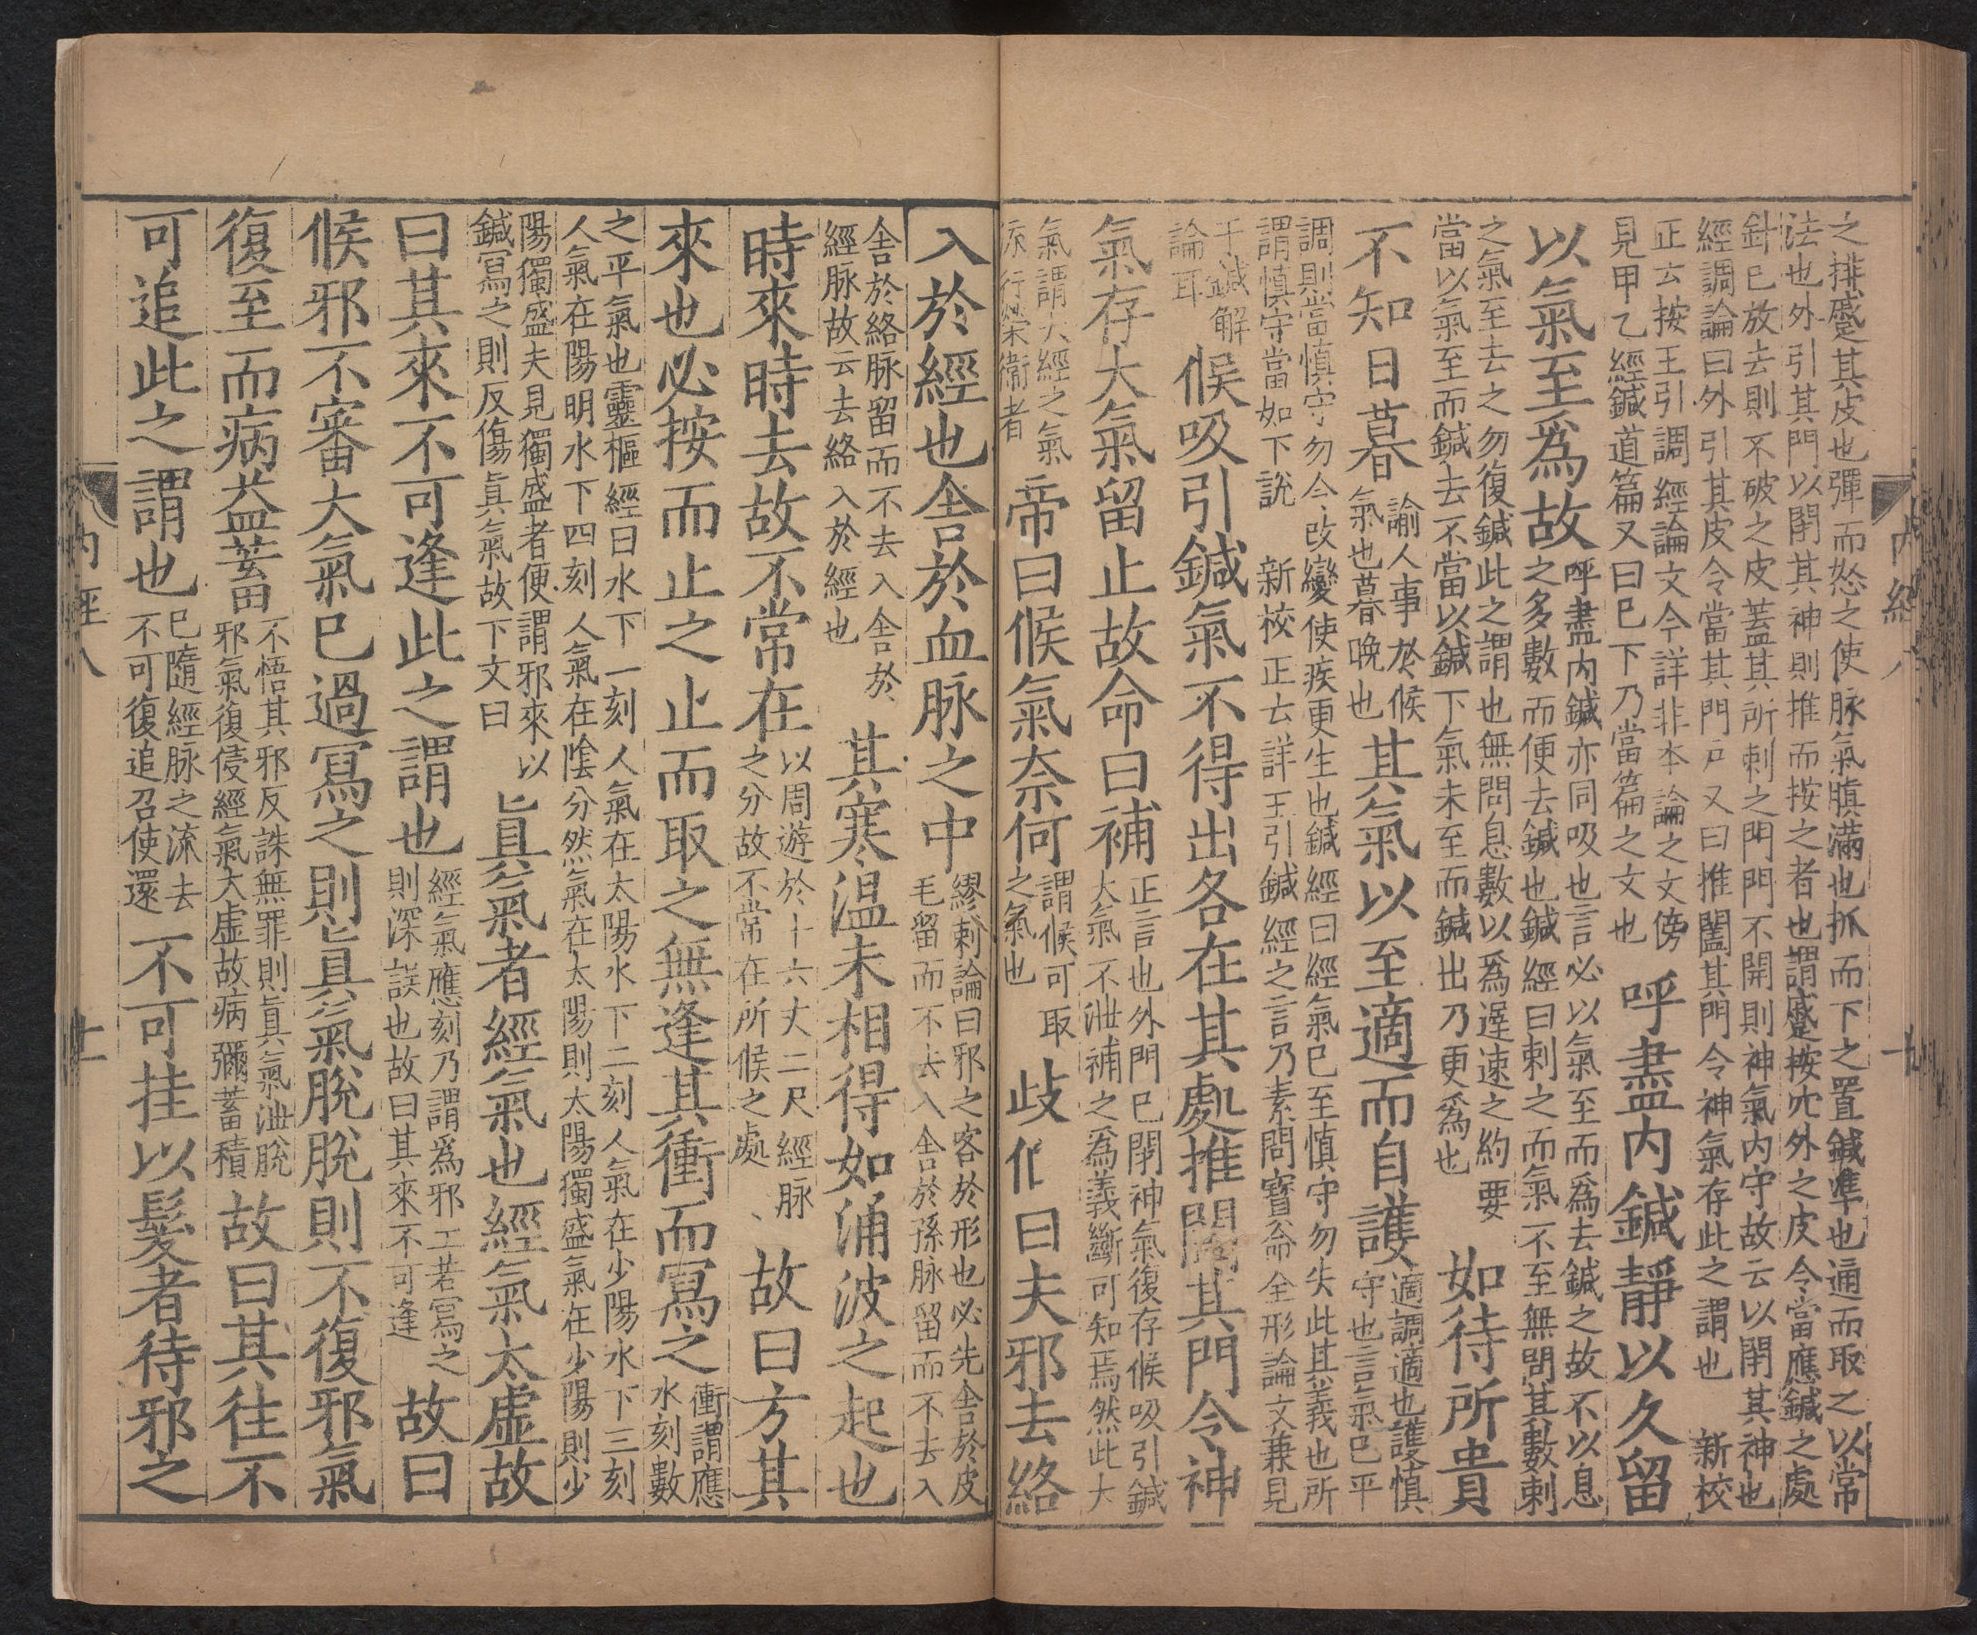 之排蹙其皮也彈而怒之使脉氣䐜滿也抓而下之置鍼準也通而取之以常
法也外引其門以閉其神則推而按之者也謂蹙按穴外之皮令當應鍼之處
針已放去則不破之皮蓋其所刺之門門不開則神氣內守故云以閉其神也
經調論曰外引其皮令當其門戶又曰推闔其門令神氣存此之謂也 新校
正云按王引調經論文今詳非本論之文傍
見甲乙經鍼道篇又曰已下乃當篇之文也
呼盡內鍼靜以久留
以氣至爲故
呼盡內鍼亦同吸也言必以氣至而爲去鍼之故不以息
之多數而便去鍼也鍼經曰刺之而氣不至無問其數刺
之氣至去之勿復鍼此之謂也無問息數以爲遲速之約要
當以氣至而鍼去不當以鍼下氣未至而鍼出乃更爲也
如待所貴
不知日暮
諭人事於候
氣也暮晚也
其氣以至適而自護
適調適也護慎
守也言氣已平
調則當慎守勿令改變使疾更生也鍼經曰經氣已至慎守勿失此其義也所
謂慎守當如下說 新校正云詳王引鍼經之言乃素問寶命全形論文兼見
于鍼解
論耳
候吸引鍼氣不得出各在其處推闔其門令神
氣存大氣留止故命曰補
正言也外門已閉神氣復存候吸引鍼
大氣不泄補之爲義斷可知焉然此大
氣謂大經之氣
流行榮衛者
帝曰候氣奈何
謂候可取
之氣也
歧伯曰夫邪去絡
入於經也舍於血脉之中
繆刺論曰邪之客於形也必先舍於皮
毛留而不去入舍於孫脉留而不去入
舍於絡脉留而不去入舍於
經脉故云去絡入於經也
其寒溫未相得如涌波之起也
時來時去故不常在
以周遊於十六丈二尺經脉
之分故不常在所候之處
故曰方其
來也必按而止之止而取之無逢其衝而寫之
衝謂應
水刻數
之平氣也靈樞經曰水下一刻人氣在太陽水下二刻人氣在少陽水下三刻
人氣在陽明水下四刻人氣在陰分然氣在太陽則太陽獨盛氣在少陽則少
陽獨盛夫見獨盛者便謂邪來以
鍼寫之則反傷眞氣故下文曰
眞氣者經氣也經氣太虛故
曰其來不可逢此之謂也
經氣應刻乃謂爲邪工若寫之
則深誤也故曰其來不可逢
故曰
候邪不審大氣已過寫之則眞氣脫脫則不復邪氣
復至而病益蓄
不悟其邪反誅無罪則眞氣泄脫
邪氣復侵經氣大虛故病彌蓄積
故曰其往不
可追此之謂也
已隨經脉之流去
不可復追召使還
不可挂以髮者待邪之
內經八
十
內經八
十